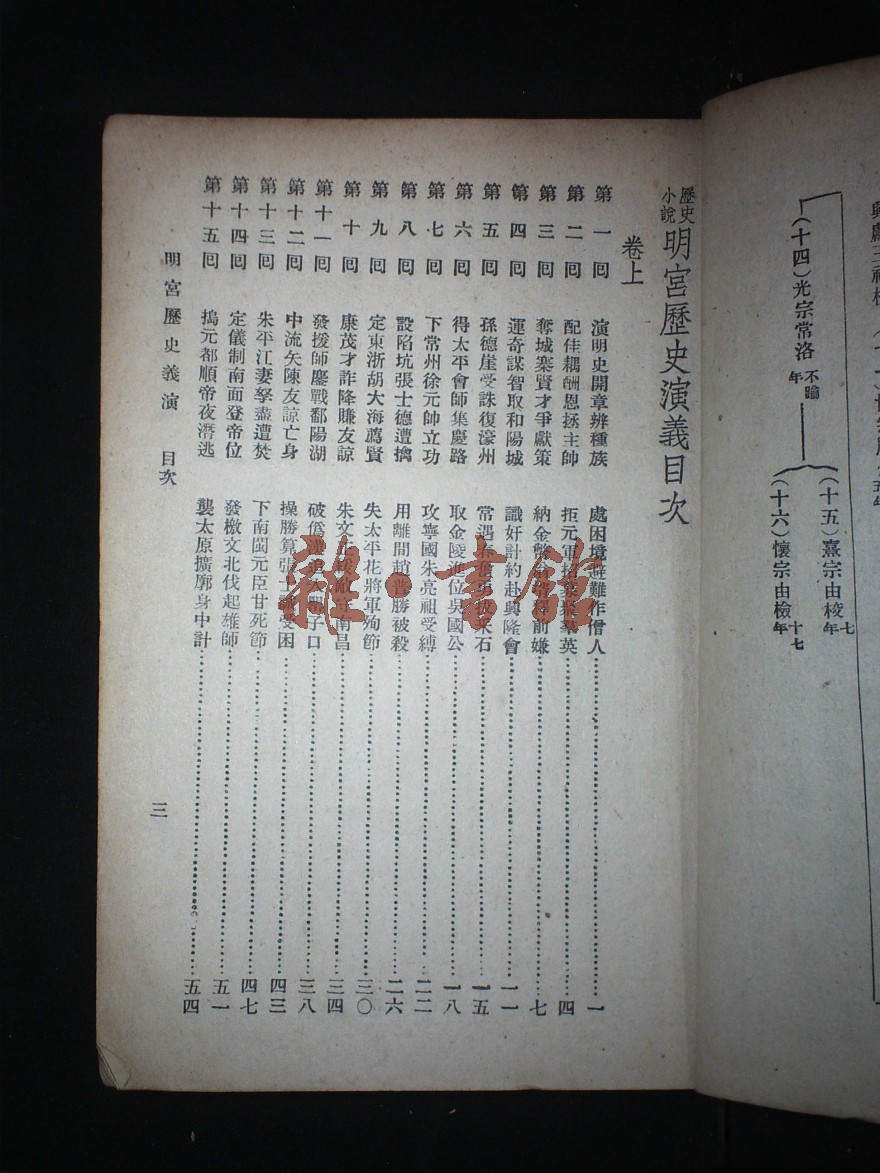 (十四)光宗常洛 不踰年
(十五)熹宗由校 七年
(十六)懷宗由檢 十七年
歷史小說 明宮歷史演義目次
卷上
第一囘 演明史開章辨種族 處困境避難作僧人 一
第二囘 配佳耦酬恩拯主帥 拒元軍 聚羣英 四
第三囘 奪城寨賢才爭獻策 納金幣 釋前嫌 七
第四囘 運奇謀智取和陽城 識奸計約赴興隆會 一一
第五囘 孫德崖受誅復濠州 常遇春奮勇拔采石 一五
第六囘 得太平會師集慶路 取金陵進位吳國公 一八
第七囘 下常州徐元帥立功 攻寧國朱亮祖受縛 二二
第八囘 設陷坑張士德遭擒 用離間趙普勝破殺 二六
第九囘 定東浙胡大海薦賢 失太平花將軍殉節 三〇
第十囘 康茂才詐降賺友諒 朱文正 敵守南昌 三四
第十一囘 發援師鏖戰鄱陽湖 破僞漢追 子口 三八
第十二囘 中流矢陳友諒亡身 操勝算張士誠受困 四三
第十三囘 朱平江妻孥盡遭焚 下南閩元臣甘死節 四七
第十四囘 定儀制南面登帝位 發檄文北伐起雄師 五一
第十五囘 搗元都順帝夜潛逃 襲太原擴廓身中計 五四
明宮歷史義演 目次 三
雜·書館